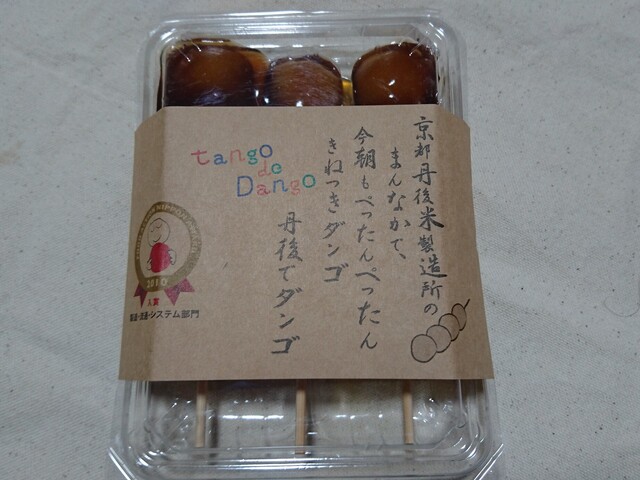 京都丹後米製造所の
まんなかで、
今朝もぺったんぺったん
きねつきダンゴ
tango
de
Dango
丹後でダンゴ
2010
入賞
製造・流通・システム部門